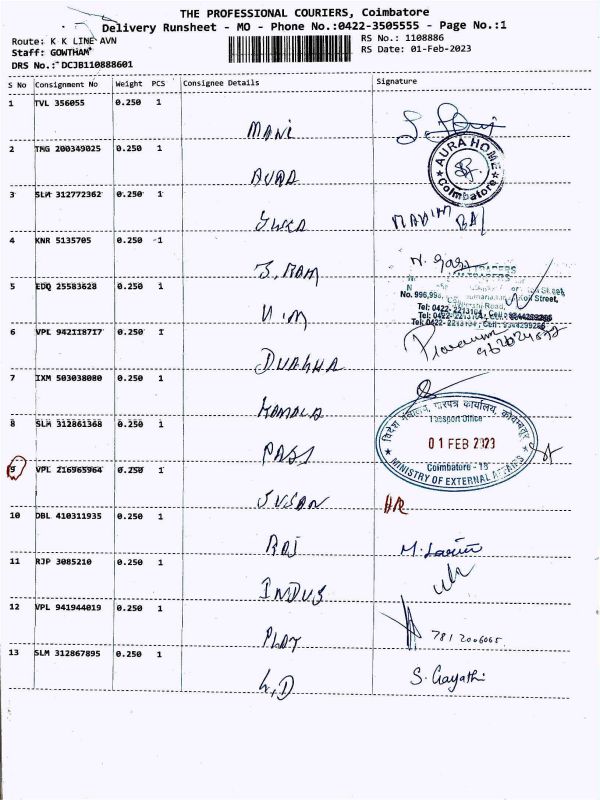 THE PROFESSIONAL COURIERS, Coimbatore
Delivery Runsheet - MO - Phone No.:0422-3505555 - Page No.:1
Route: K K LINE AVN
RS No.: 1108886
Staff: GOWTHAM
RS Date: 01-Feb-2023
DRS No.: DCJB110888601
S No Consignment No Weight PCS Consignee Details Signature
1 TVL 356055 0.250 1
MANI
2 TMG 200349025 0.250 1
AURA
AURA HOME
Coimbatore
3 SLM 312772362 0.250 1
4 KNR 5135705 0.250 1
S. RAM
5 EDQ 25583628 0.250 1
No. 996,998, Street,
Tel: 0422-2213104, Cell: 9344299286
Tel: 0422-2213104, Cell: 9344299286
6 VPL 942118717 0.250 1
7 IXM 503038080 0.250 1
KAMALA
8 SLM 312861368 0.250 1
PASS
विदेश मंत्रालय, पारपत्र कार्यालय, कोयम्बतूर
Passport Office
01 FEB 2023
Coimbatore - 18
MINISTRY OF EXTERNAL AFFAIRS
9 VPL 216965964 0.250 1
SUSAN
10 DBL 410311935 0.250 1
RAJ
11 RJP 3085210 0.250 1
INDUS
12 VPL 941944019 0.250 1
PLAY
7812006065
13 SLM 312867895 0.250 1
L,D
S. Gayathi